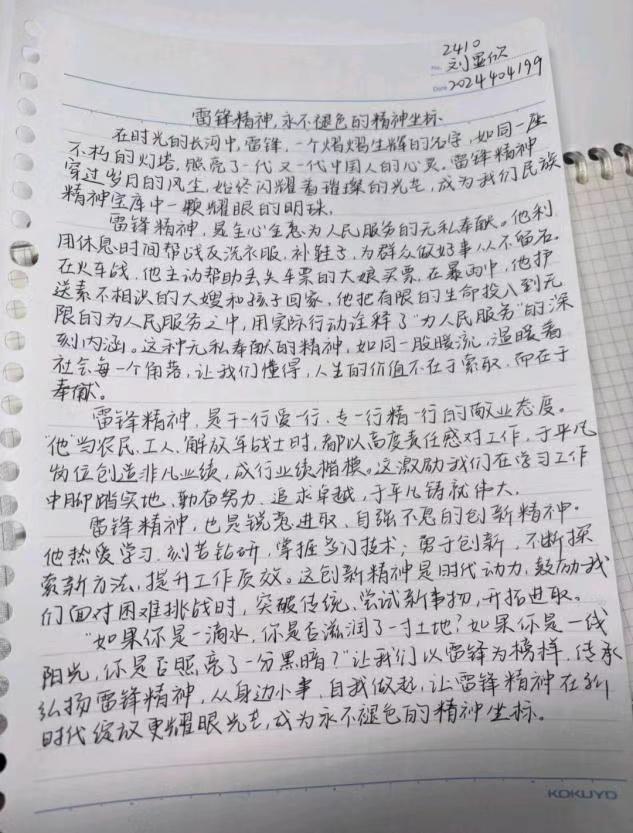 2410
No. 刘显欣
Date 2024404199
雷锋精神,永不褪色的精神坐标
在时光的长河中,雷锋,一个熠熠生辉的名字,如同一座
不朽的灯塔,照亮了一代又一代中国人的心灵。雷锋精神
穿过岁月的风尘,始终闪耀着璀璨的光芒,成为我们民族
精神宝库中一颗耀眼的明珠。
雷锋精神,是全心全意为人民服务的无私奉献。他利
用休息时间帮战友洗衣服、补鞋子,为群众做好事从不留名。
在火车站,他主动帮助丢失车票的大娘买票,在暴雨中,他护
送素不相识的大嫂和孩子回家,他把有限的生命投入到无
限的为人民服务之中,用实际行动诠释了“为人民服务”的深
刻内涵。这种无私奉献的精神,如同一股暖流,温暖着
社会每一个角落,让我们懂得,人生的价值不在于索取,而在于
奉献。
雷锋精神,是干一行爱一行、专一行精一行的敬业态度。
“他”当农民、工人、解放军战士时,都以高度责任感对工作,于平凡
岗位创造非凡业绩,成行业楷模。这激励我们在学习工作
中脚踏实地、勤奋努力、追求卓越,于平凡铸就伟大。
雷锋精神,也是锐意进取、自强不息的创新精神。
他热爱学习、刻苦钻研,掌握多门技术;勇于创新,不断探
索新方法,提升工作质效。这创新精神是时代动力,鼓励我
们面对困难挑战时,突破传统、尝试新事物,开拓进取。
“如果你是一滴水,你是否滋润了一寸土地?如果你是一线
阳光,你是否照亮了一分黑暗?”让我们以雷锋为榜样,传承
弘扬雷锋精神,从身边小事、自我做起,让雷锋精神在新
时代绽放更耀眼光芒,成为永不褪色的精神坐标。
KOKUYO